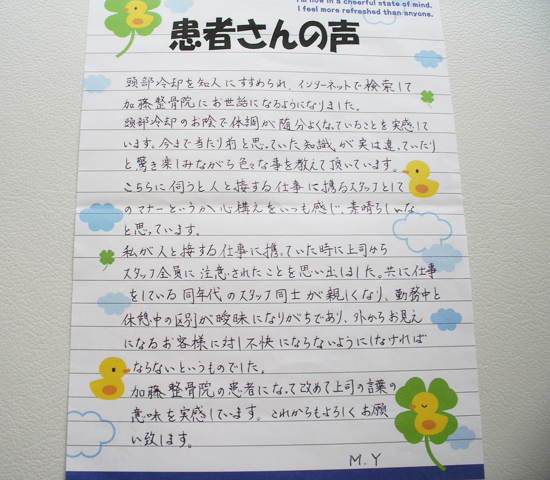 I'm now in a cheerful state of mind.
I feel more refreshed than anyone.
患者さんの声
頭部冷却を知人にすすめられ、インターネットで検索して
加藤整骨院にお世話になるようになりました。
頭部冷却のお陰で体調が随分よくなっていることを実感して
います。今まで当たり前と思っていた知識が実は違っていたり
と驚き楽しみながら色々な事を教えて頂いています。
こちらに伺うと人と接する仕事に携るスタッフとして
のマナーというか心構えをいつも感じ、素晴らしいな
と思っています。
私が人と接する仕事に携っていた時に上司から
スタッフ全員に注意されたことを思い出しました。共に仕事
をしている同年代のスタッフ同士が親しくなり、勤務中と
休憩中の区別が曖昧になりがちであり、外からお見え
になるお客様に対し不快にならないようにしなければ
ならないというものでした。
加藤整骨院の患者になって改めて上司の言葉の
意味を実感しています。これからもよろしくお願
い致します。
M.Y